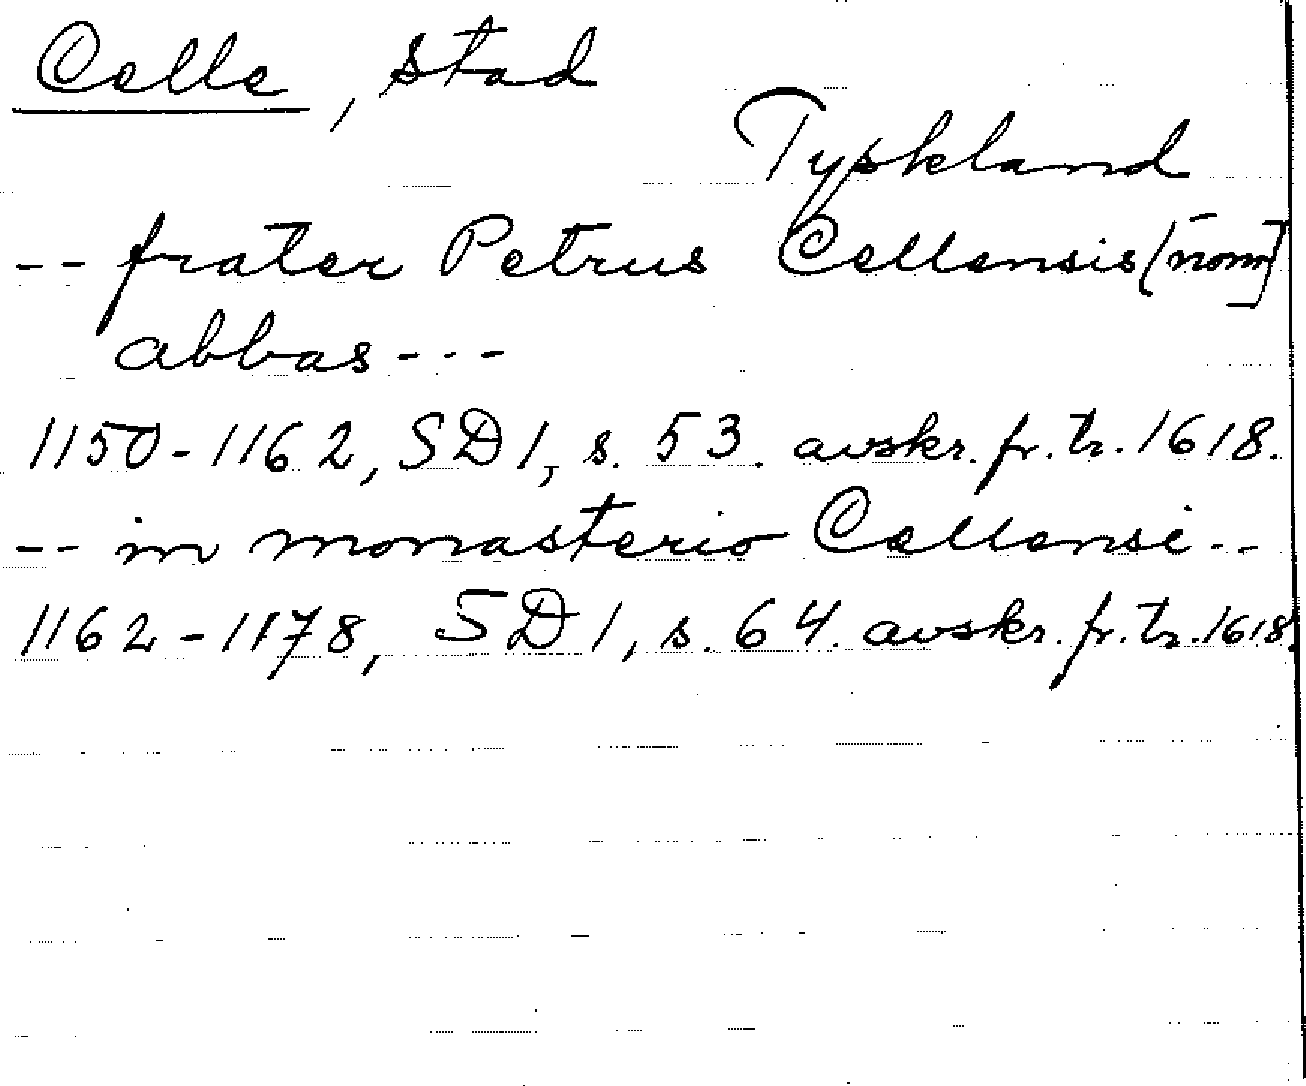 Celle, stad
Tyskland
-- frater Petrus Cellensis [nom]
abbas ---
1150-1162, SD 1, s. 53. avskr. fr. tr. 1618.
-- in monasterio Cellensi --
1162-1178, SD 1, s. 64. avskr. fr. tr. 1618.